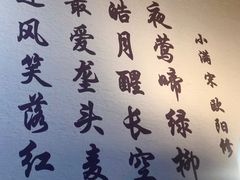 小满 宋 欧阳修
夜莺啼绿柳
皓月醒长空
最爱垄头麦
风笑落红